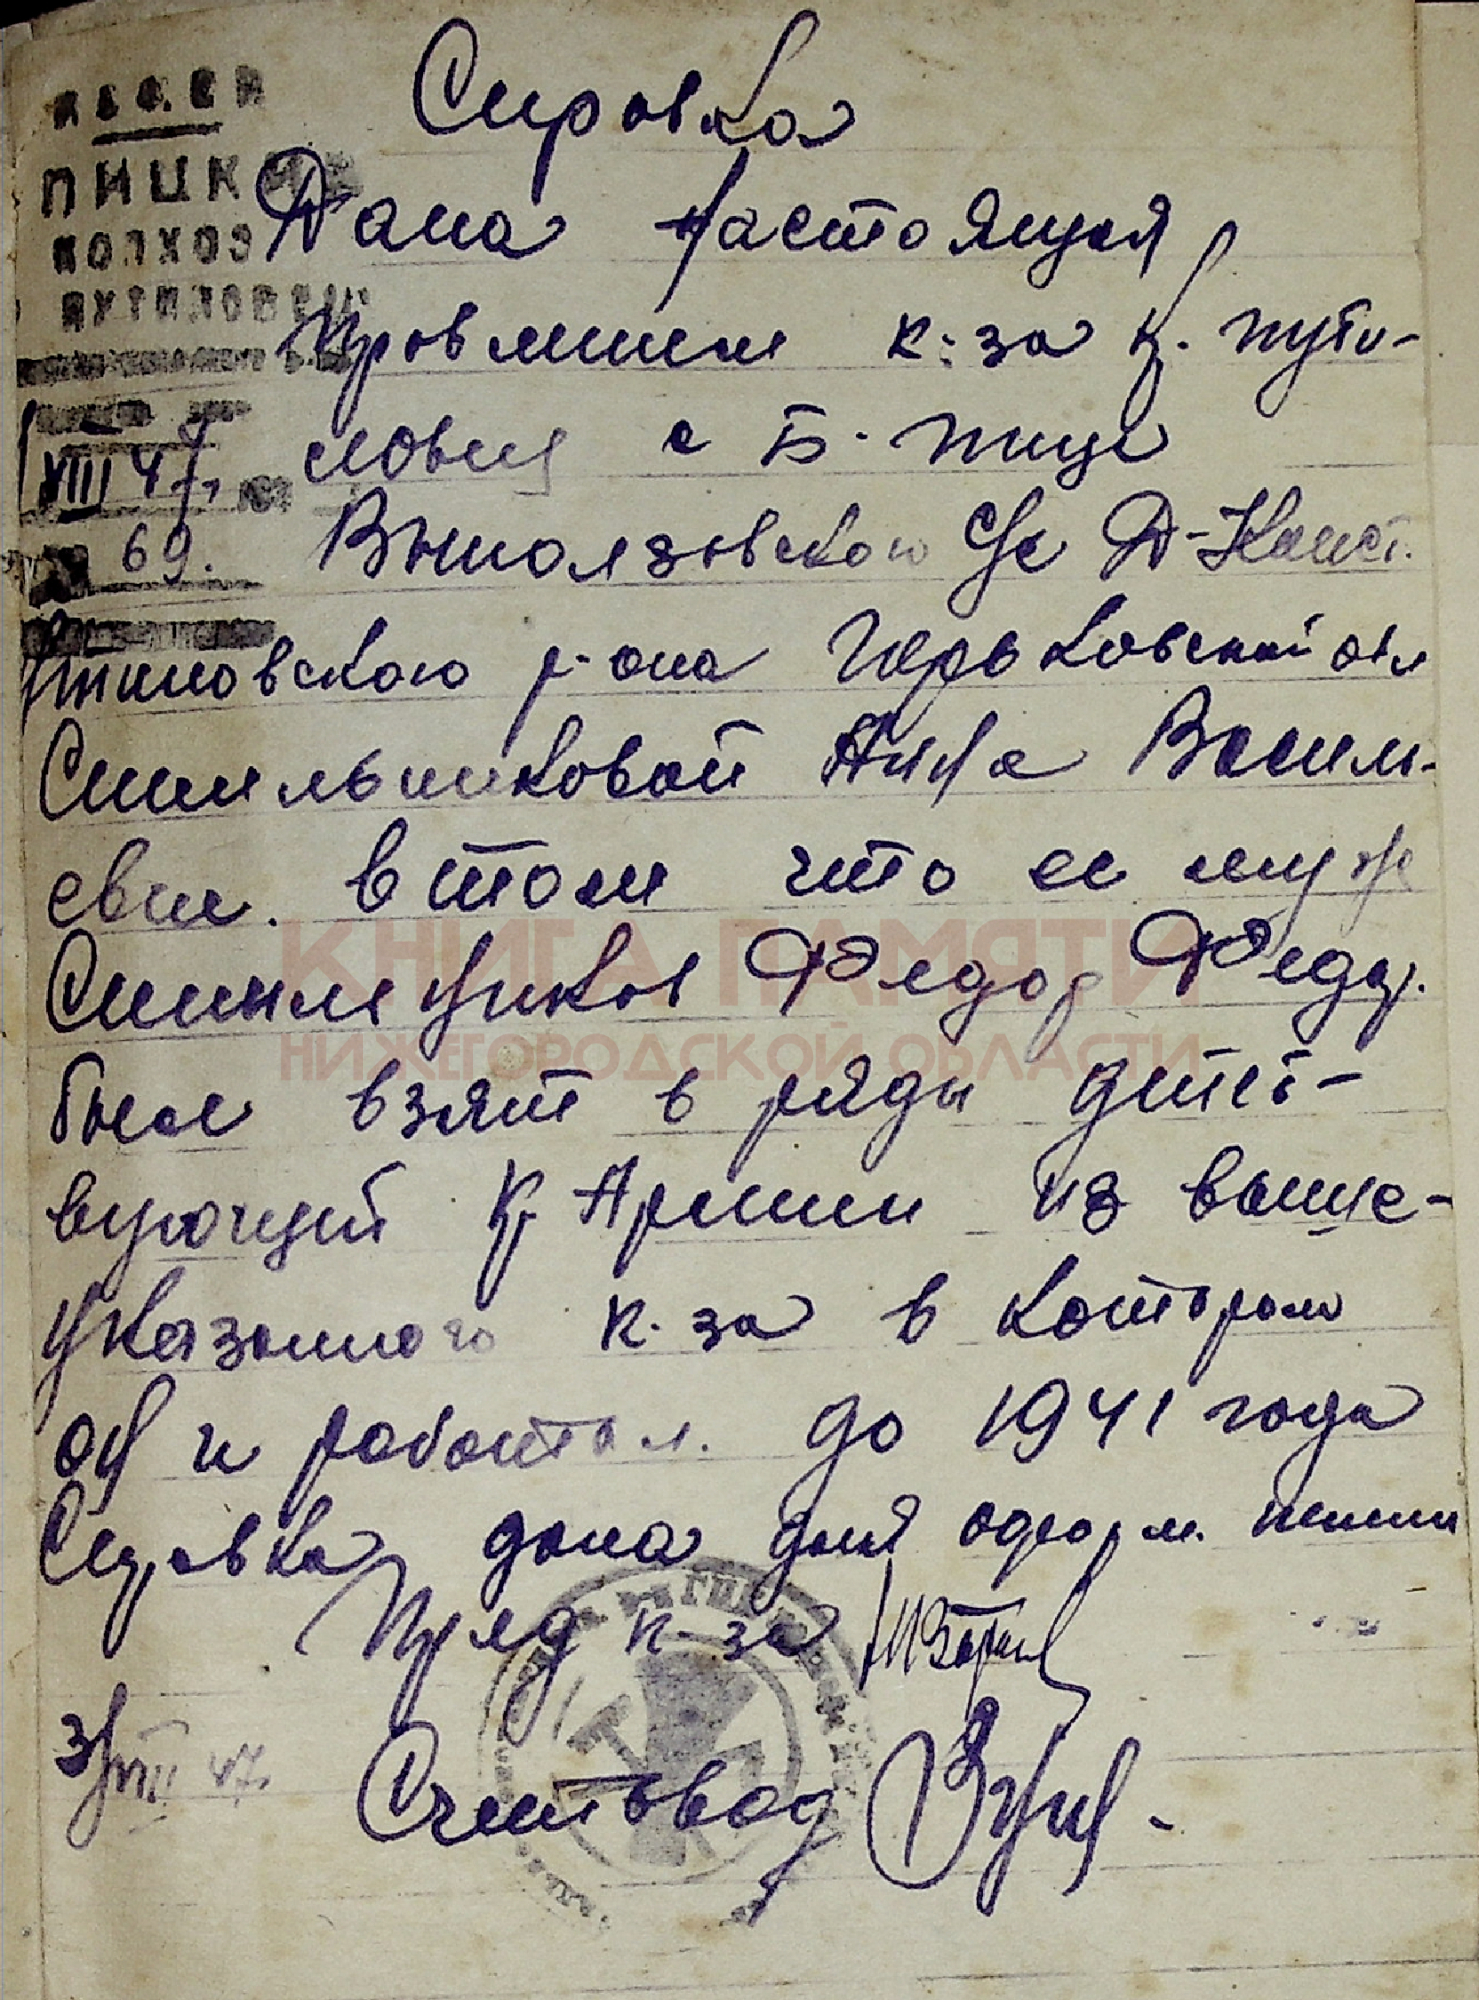 Справка
ПИЦКИЙ
КОЛХОЗ
Дана настоящая
Правлением к-за К. пути-
ловец с Б. пице
VIII 47 г.
Выползовского с/с Д-Конст.
69.
тиновского р-она Горьковской обл
Синильниковой Анна Василь-
евне. в том что ее муж
Синильников Федор Федор.
был взят в ряды дейст-
вующей Кр Армии из выше-
указанного к-за в котором
он и работал. до 1941 года
Справка дана для оформ. пенсии
Пред к-за
3/VIII 47.
Счетовод
КНИГА ПАМЯТИ
НИЖЕГОРОДСКОЙ ОБЛАСТИ